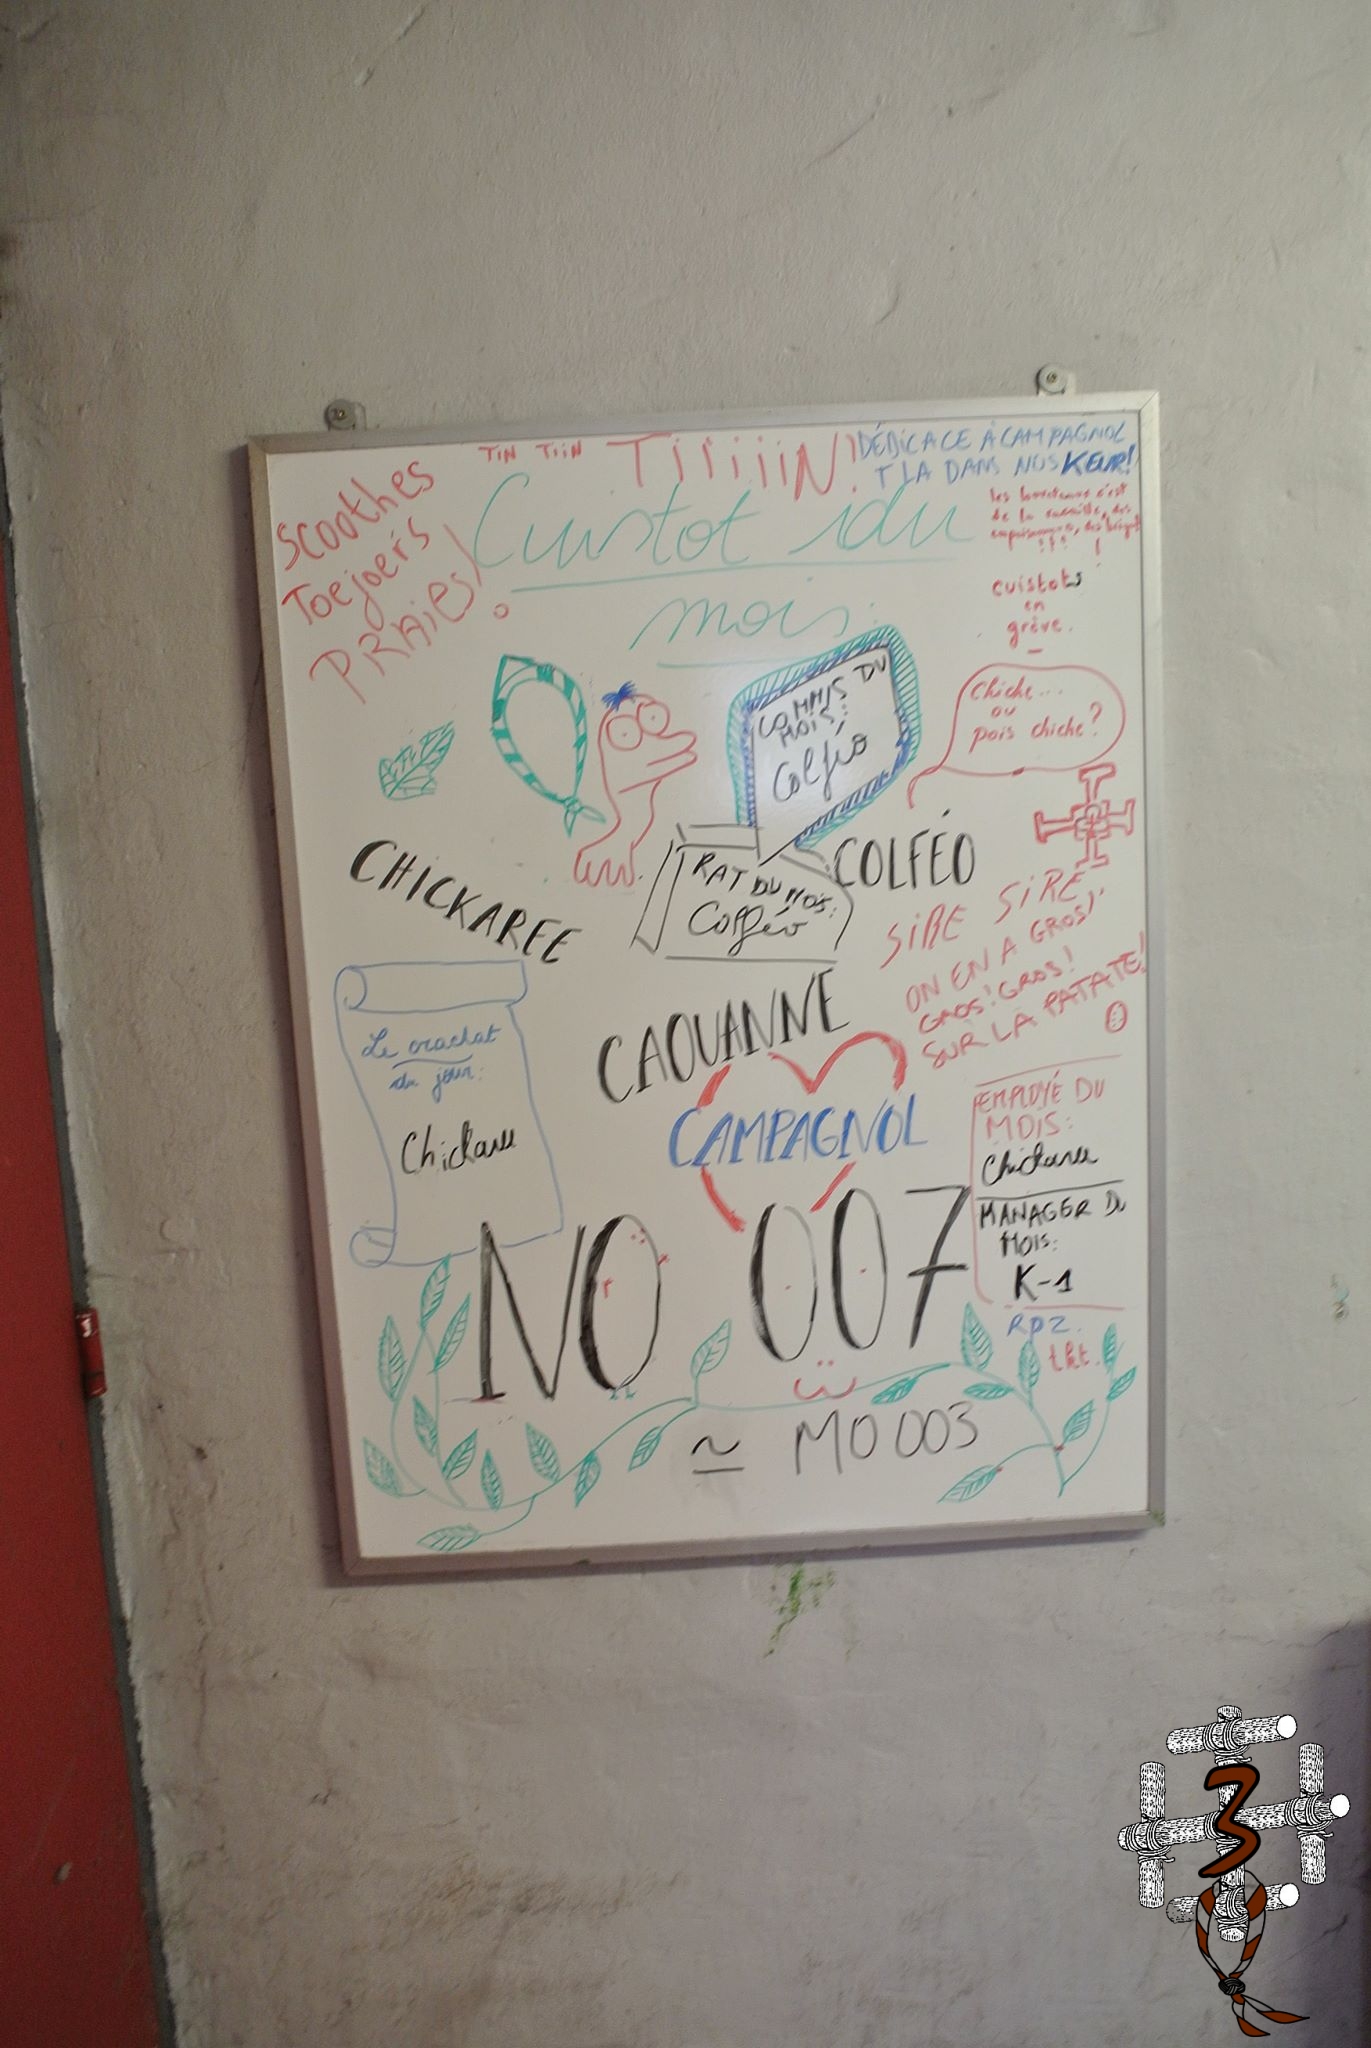 TIN TIIN TIIIIIIN!
DÉDICACE À CAMPAGNOL
T LA DANS NOS KEUR!
Scoothes
Toejoers
PRAiES!
Cuistot du
mois:
de la racaille, des
!
cuistots
en
grève.
Chiche...
ou
pois chiche?
COMMIS DU
MOIS:
Colféo
CHICKAREE
RAT DU MOIS:
Colféo
COLFÉO
SIRE SIRE
ON EN A GROS!
GROS! GROS!
SUR LA PATATE!
CAOUANNE
Le crachat
du jour:
Chickaree
CAMPAGNOL
EMPLOYÉ DU
MOIS:
Chickaree
MANAGER DU
MOIS:
K-1
NO 007
RPZ.
tkt.
≃ MO 003
3